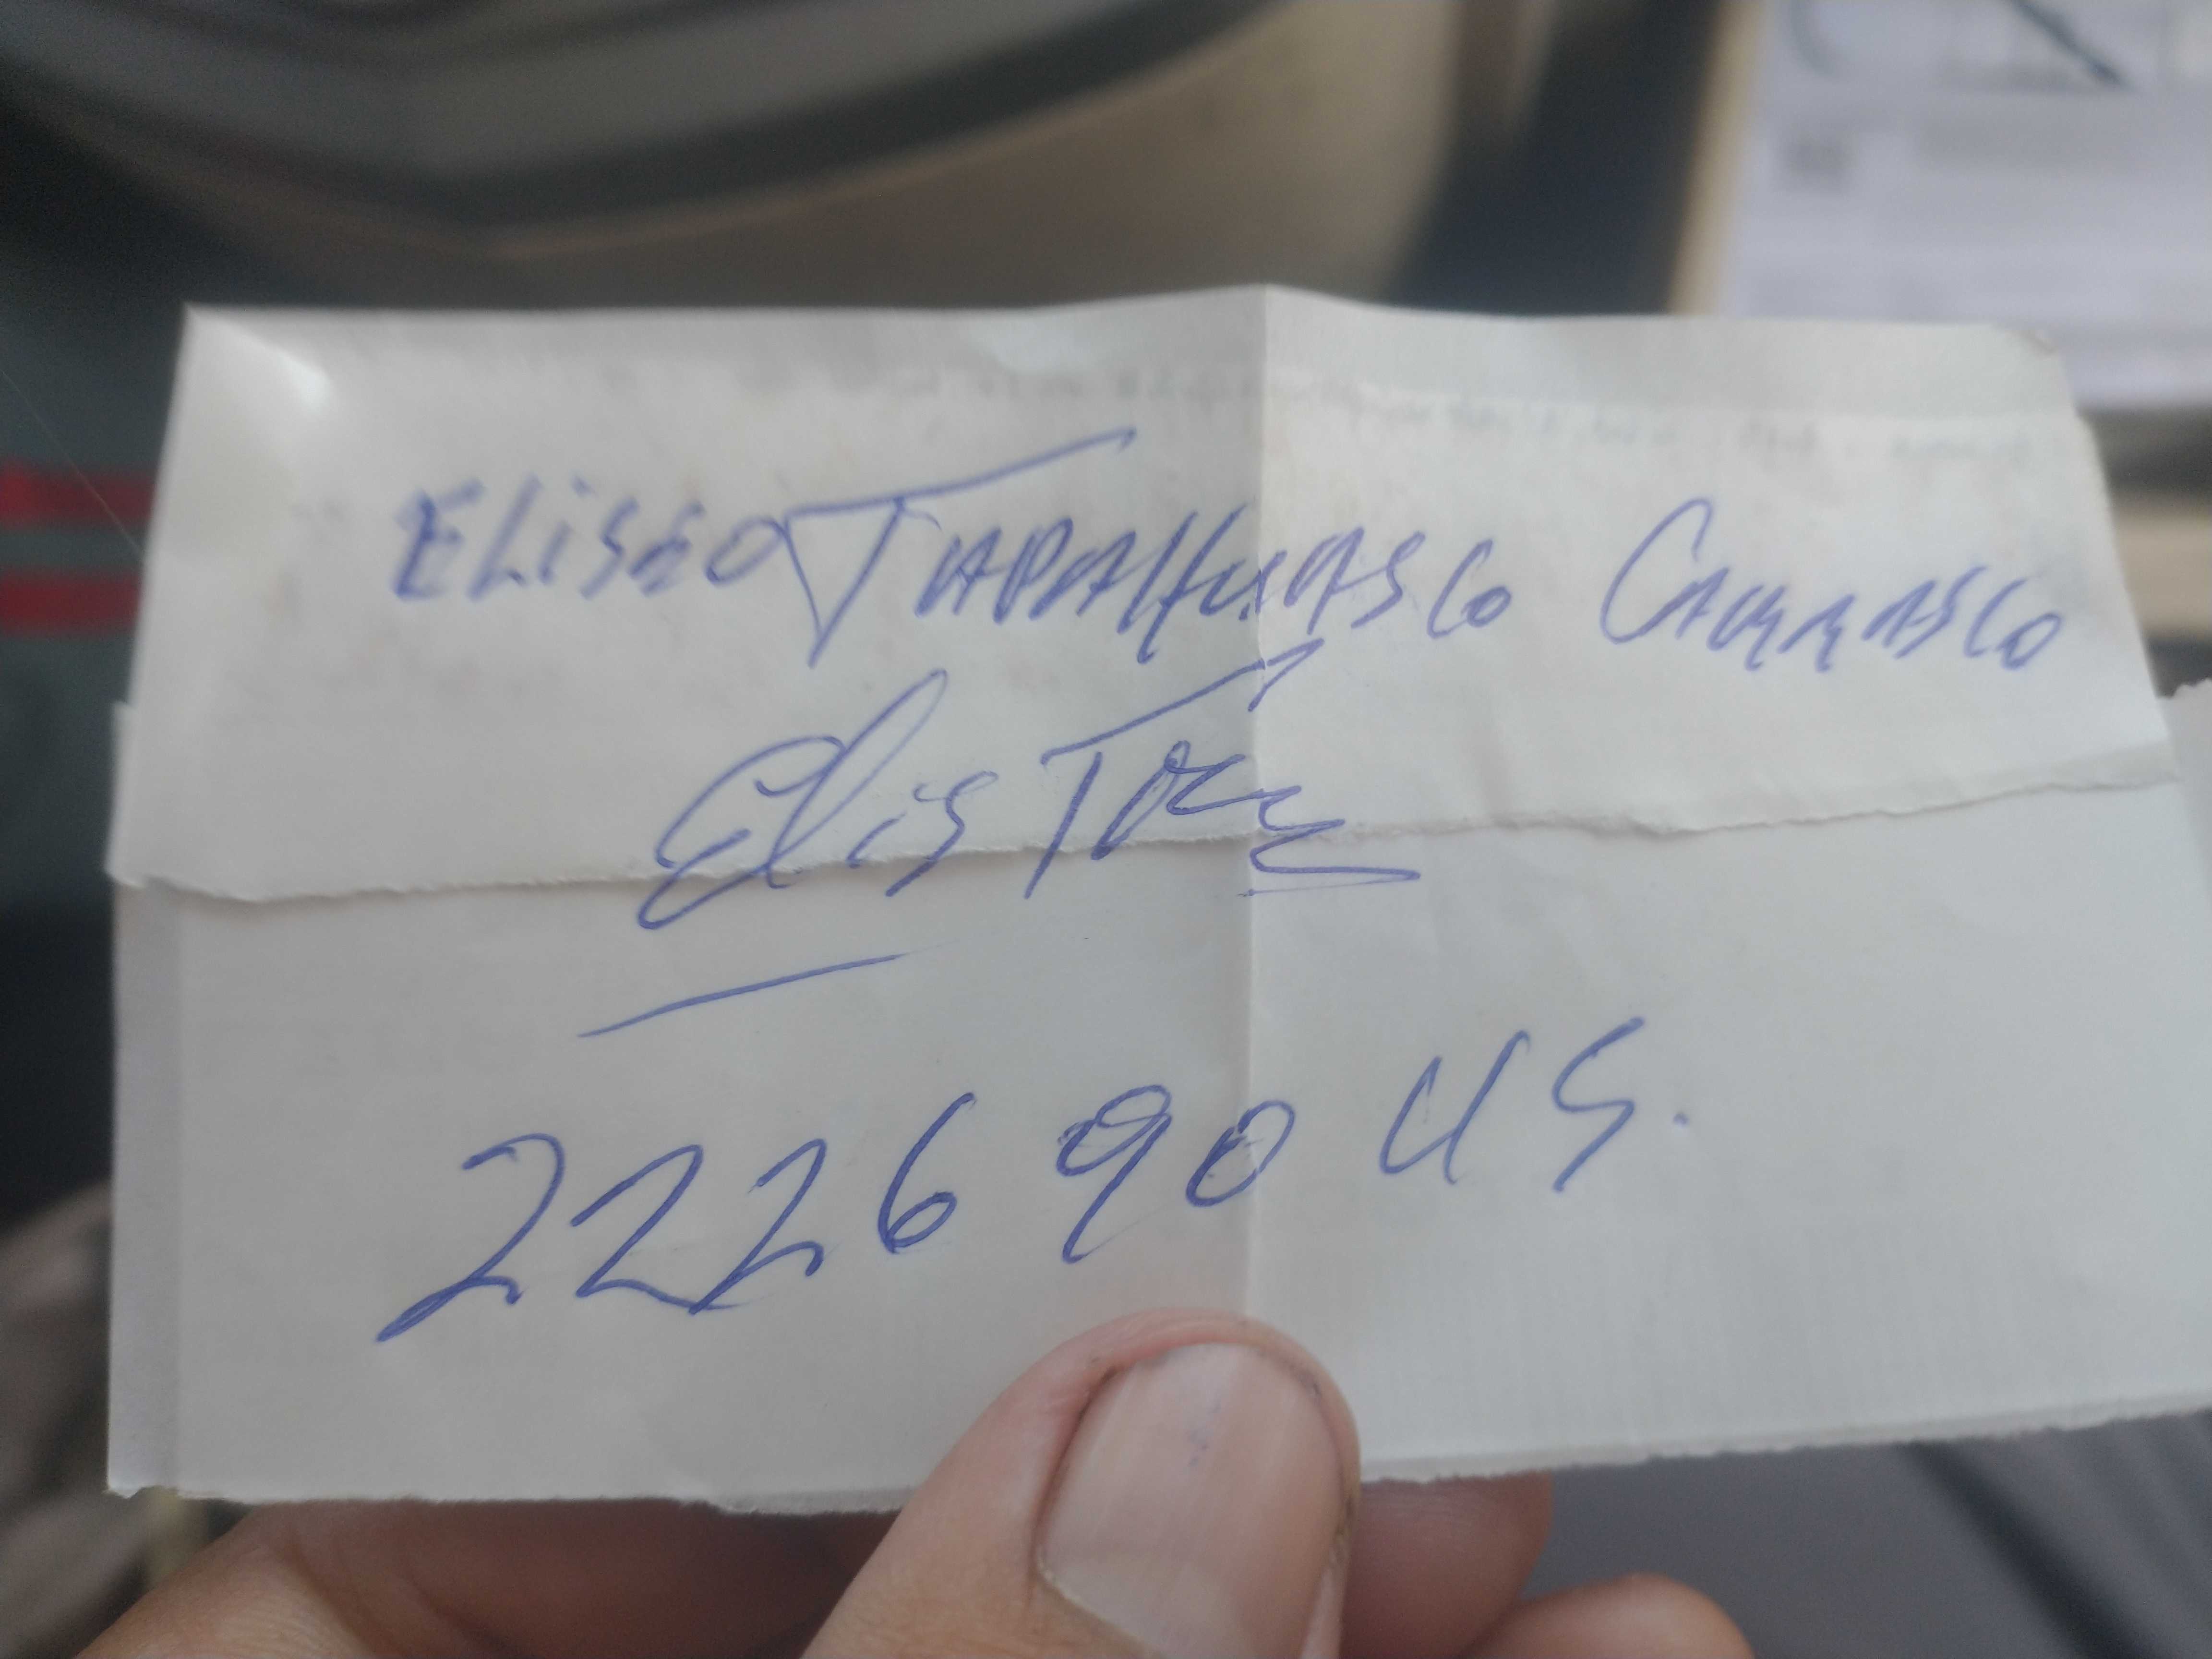 ELISEO TAPAHUASCO CARRASCO
Elis
222690 US.